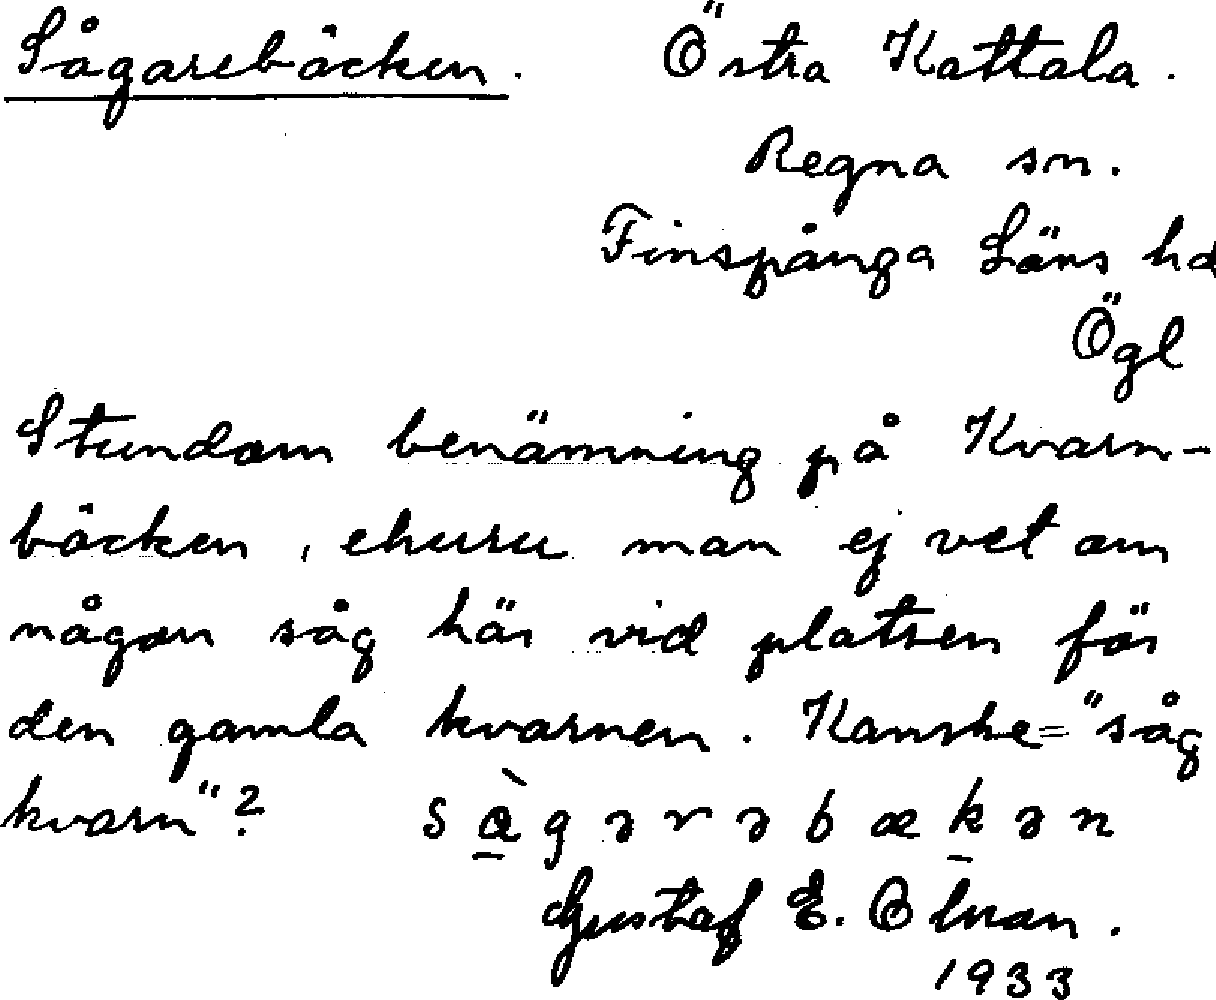 Sågarebäcken. Östra Kattala.
Regna sn.
Finspånga Läns hd
Ögl
Stundom benämning på Kvarn-
bäcken, ehuru man ej vet om
någon såg här vid platsen för
den gamla kvarnen. Kanske = "såg
kvarn"?
Gustaf E.
1933